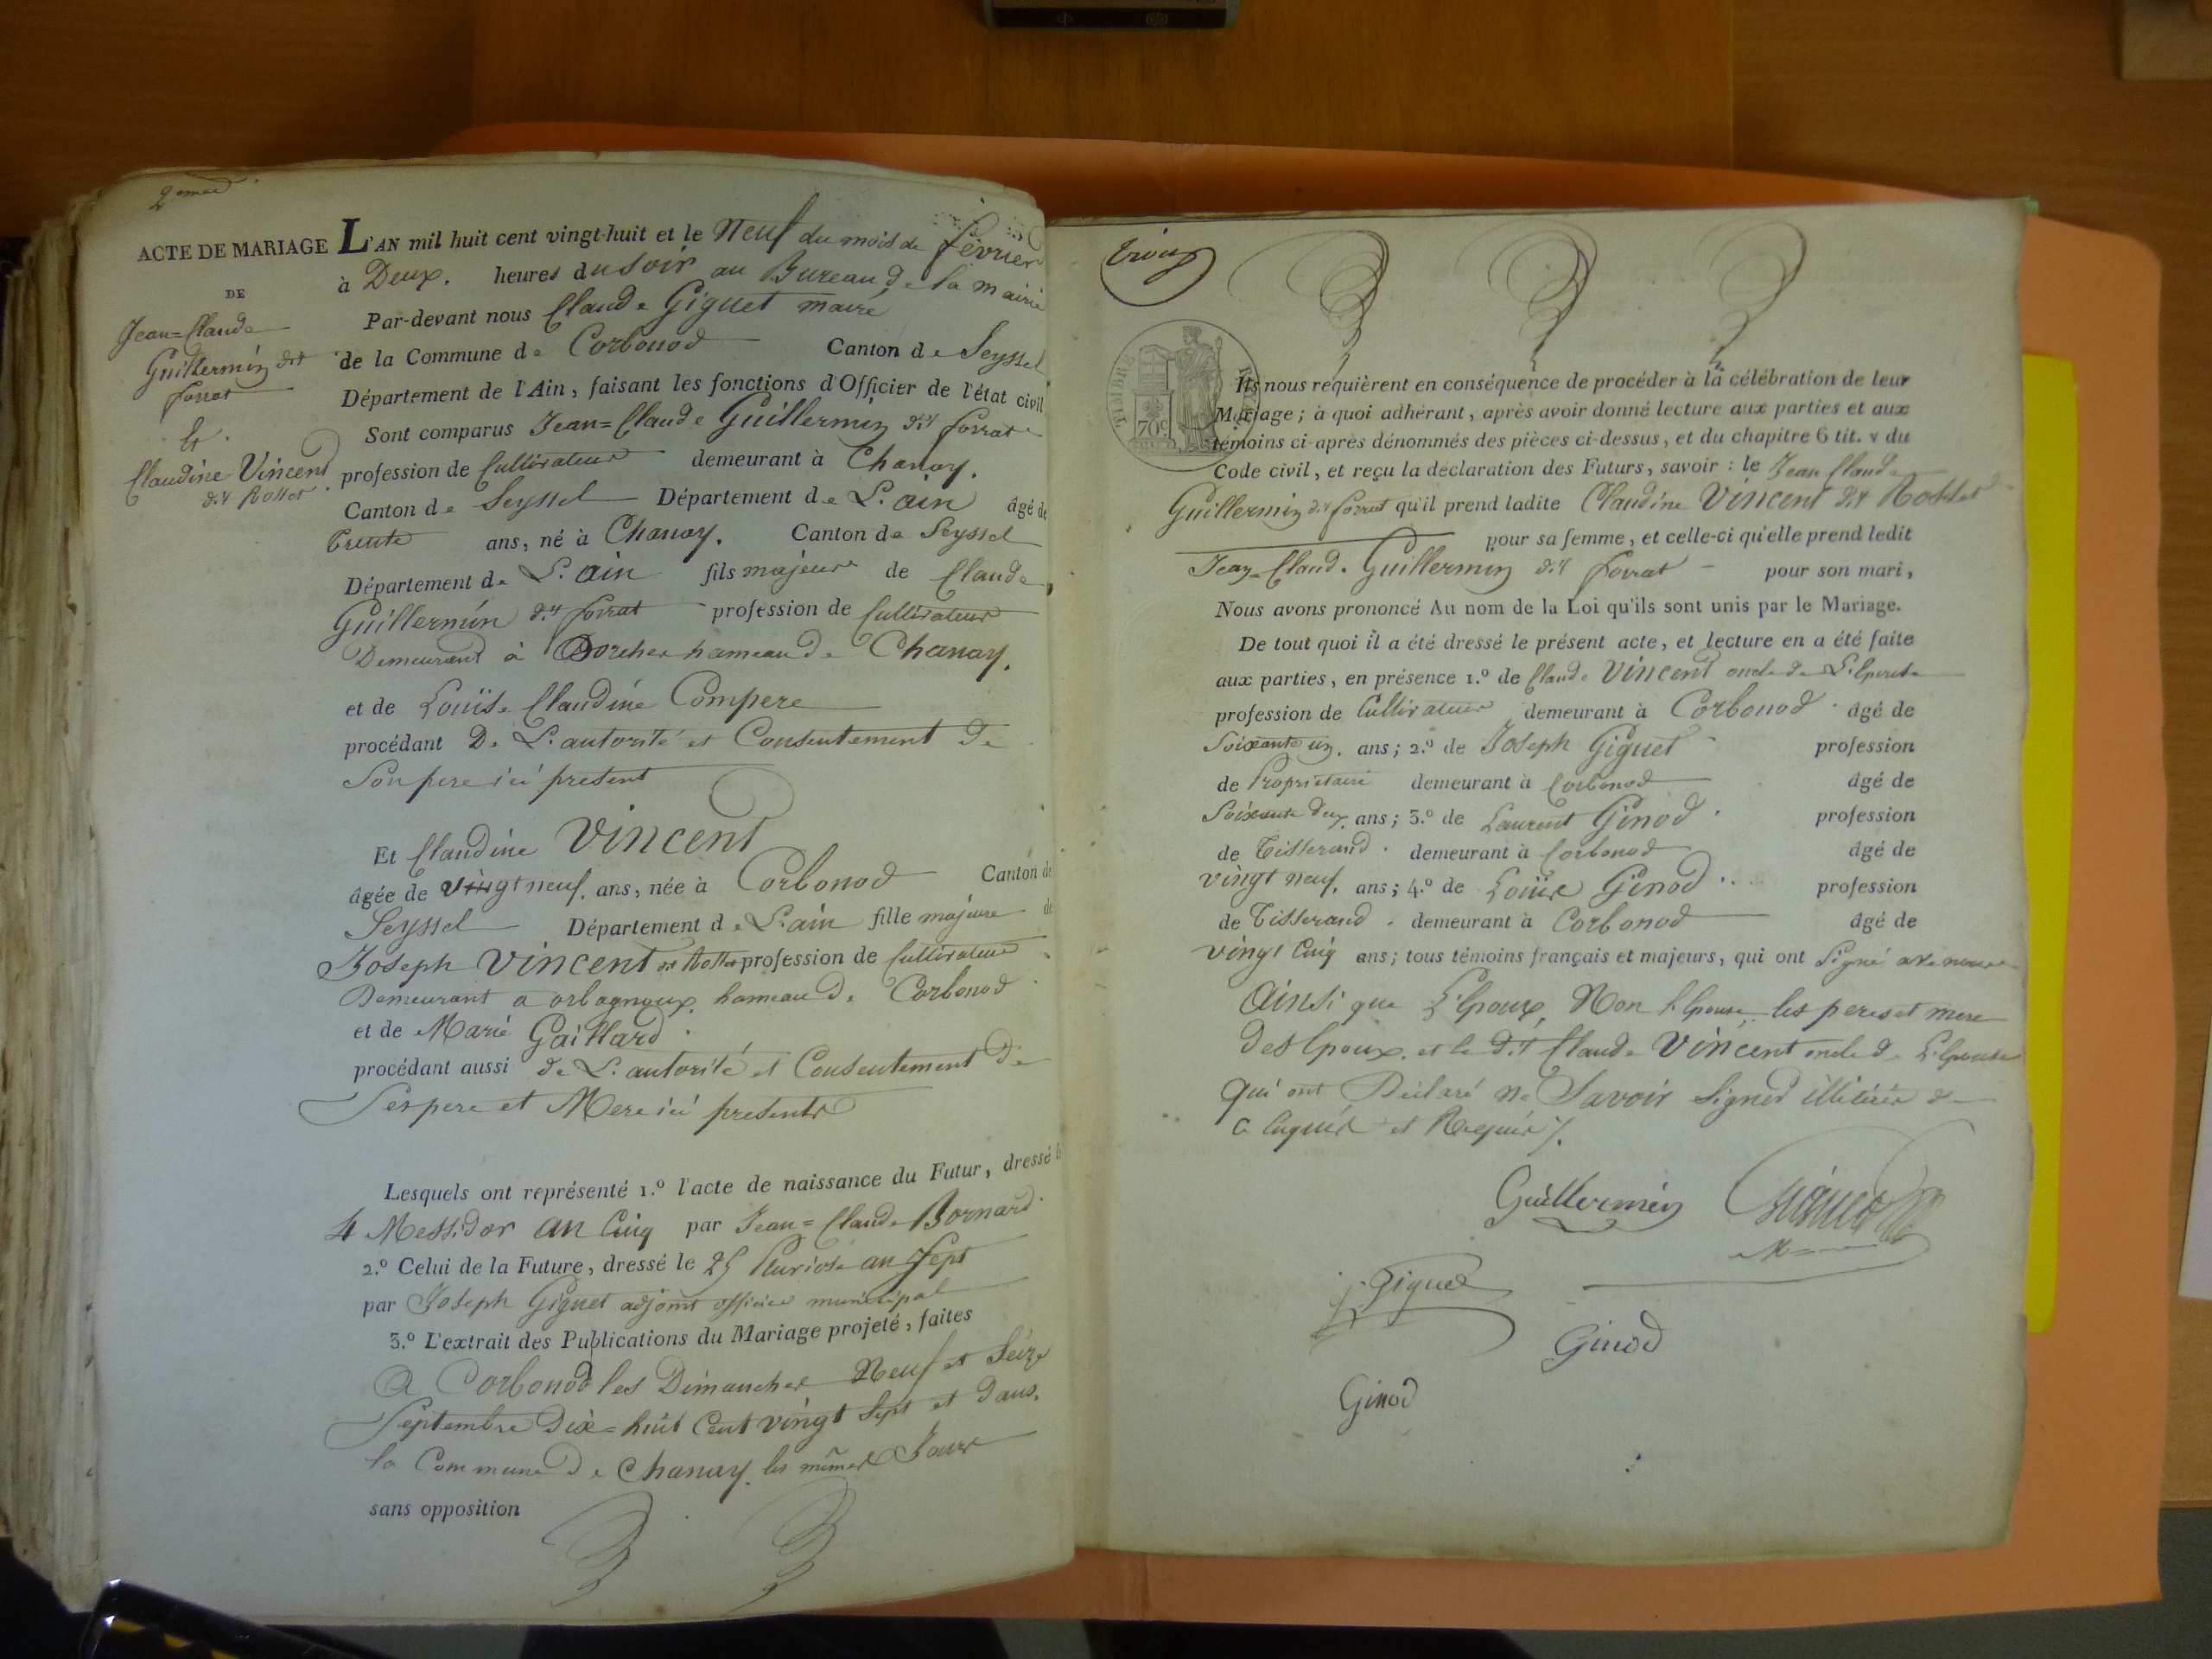 2eme
ACTE DE MARIAGE
DE
Jean=Claude
Guillermin dit
forrat
Et
Claudine Vincent
dit Rosset
L'AN mil huit cent vingt-huit et le Neuf du mois de février
à Deux. heures du soir au Bureau de la mairie
Par-devant nous Claude Giguet maire
de la Commune de Corbonod Canton de Seyssel
Département de l'Ain, faisant les fonctions d'Officier de l'état civil
Sont comparus Jean=Claude Guillermin dit forrat
profession de Cultivateur demeurant à Chanay.
Canton de Seyssel Département de L'ain âgé de
trente ans, né à Chanay. Canton de Seyssel
Département de L'ain fils majeur de Claude
Guillermin dit forrat profession de Cultivateur
Demeurant à Dorches hameau de Chanay.
et de Louise Claudine Compere
procédant De L'autorité et Consentement de
Son pere ici present
Et Claudine Vincent
âgée de vingt neuf. ans, née à Corbonod Canton de
Seyssel Département de L'ain fille majeure de
Joseph Vincent dit Rosset profession de Cultivateur
Demeurant a orbagnoux hameau de Corbonod
et de Marie Gaillard
procédant aussi de L'autorité et Consentement de
Ses pere et Mere ici presents
Lesquels ont représenté 1.º l'acte de naissance du Futur, dressé le
4 Messidor an Cinq par Jean=Claude Bornard
2.º Celui de la Future, dressé le 25 Pluviose an sept
par Joseph Giguet adjoint officier municipal
3.º L'extrait des Publications du Mariage projeté, faites
A Corbonod les Dimanches Neuf et Seize
Septembre Dix=huit Cent vingt Sept et dans
la Commune de Chanay les mêmes Jours
sans opposition
trois
TIMBRE
70c
Ils nous requièrent en conséquence de procéder à la célébration de leur
Mariage; à quoi adhérant, après avoir donné lecture aux parties et aux
témoins ci-après dénommés des pièces ci-dessus, et du chapitre 6 tit. v du
Code civil, et reçu la déclaration des Futurs, savoir : le Jean Claude
Guillermin dit forrat qu'il prend ladite Claudine Vincent dit Rosset
pour sa femme, et celle-ci qu'elle prend ledit
Jean=Claude Guillermin dit forrat pour son mari,
Nous avons prononcé Au nom de la Loi qu'ils sont unis par le Mariage.
De tout quoi il a été dressé le présent acte, et lecture en a été faite
aux parties, en présence 1.º de Claude Vincent oncle de L'Epouse
profession de Cultivateur demeurant à Corbonod âgé de
Soixante un. ans; 2.º de Joseph Giguet profession
de Propriétaire demeurant à Corbonod âgé de
Soixante deux ans; 3.º de Laurent Ginod. profession
de Tisserand. demeurant à Corbonod âgé de
vingt neuf. ans; 4.º de Louis Ginod. profession
de Tisserand. demeurant à Corbonod âgé de
vingt Cinq ans; tous témoins français et majeurs, qui ont Signé avec nous
Ainsi que L'Epoux, Non L'Epouse les peres et mere
des Epoux. et le dit Claude Vincent oncle de L'Epouse
qui ont Déclaré ne Savoir Signer illitéré de
ce Enquis et Requis /.
Guillermin
Giguet
M
j. Giguet
Ginod
Ginod